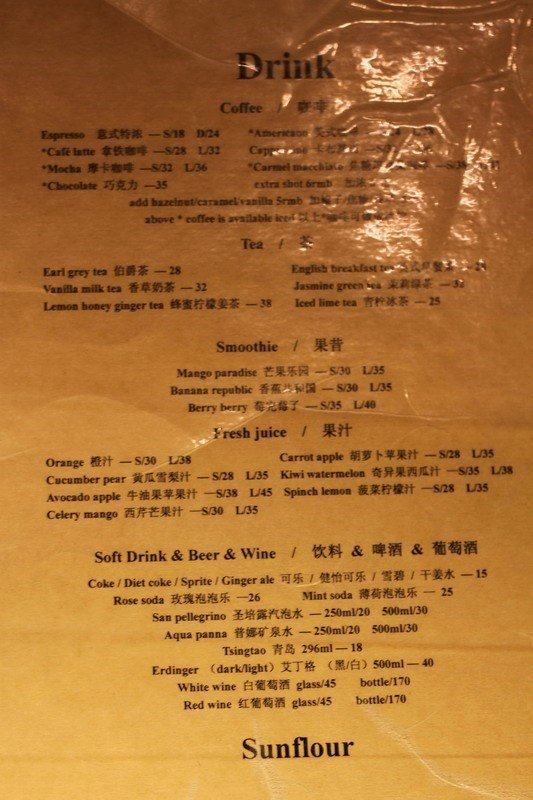 Drink
Coffee / 咖啡
Espresso 意式特浓 — S/18 D/24 *Americano
*Café latte 拿铁咖啡 —S/28 L/32
*Mocha 摩卡咖啡 —S/32 L/36 *Carmel macchiato
*Chocolate 巧克力 —35 extra shot 6rmb
add hazelnut/caramel/vanilla 5rmb
above * coffee is available iced 以上*咖啡可
Tea / 茶
Earl grey tea 伯爵茶 — 28 English breakfast tea
Vanilla milk tea 香草奶茶 — 32 Jasmine green tea 茉莉绿茶
Lemon honey ginger tea 蜂蜜柠檬姜茶 — 38 Iced lime tea 青柠冰茶 — 25
Smoothie / 果昔
Mango paradise 芒果乐园 — S/30 L/35
Banana republic 香蕉共和国 — S/30 L/35
Berry berry — S/35 L/40
Fresh juice / 果汁
Orange 橙汁 — S/30 L/38 Carrot apple 胡萝卜苹果汁 — S/28 L/35
Cucumber pear 黄瓜雪梨汁 — S/28 L/35 Kiwi watermelon 奇异果西瓜汁 — S/35 L/38
Avocado apple 牛油果苹果汁 —S/38 L/45 Spinch lemon 菠菜柠檬汁 — S/28 L/35
Celery mango 西芹芒果汁 —S/30 L/35
Soft Drink & Beer & Wine / 饮料 & 啤酒 & 葡萄酒
Coke / Diet coke / Sprite / Ginger ale 可乐 / 健怡可乐 / 雪碧 / 干姜水 — 15
Rose soda 玫瑰泡泡乐 —26 Mint soda 薄荷泡泡乐 — 25
San pellegrino 圣培露汽泡水 — 250ml/20 500ml/30
Aqua panna 普娜矿泉水 — 250ml/20 500ml/30
Tsingtao 青岛 296ml — 18
Erdinger （dark/light）艾丁格 （黑/白）500ml — 40
White wine 白葡萄酒 glass/45 bottle/170
Red wine 红葡萄酒 glass/45 bottle/170
Sunflour